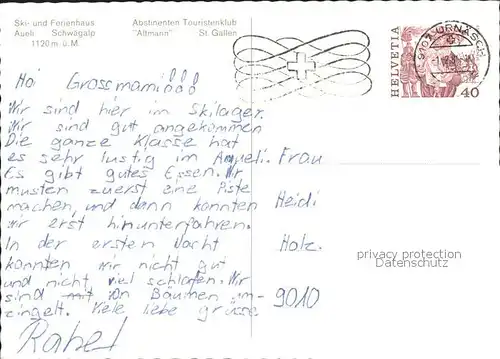 Ski- und Ferienhaus
Aueli Schwägalp
1120 m ü. M.
Abstinenten Touristenklub
"Altmann" St. Gallen
9107 URNÄSCH
HELVETIA
40
Hoi Grossmami!!!
Wir sind hier im Skilager.
Wir sind gut angekommen
Die ganze Klasse hat
es sehr lustig im
Es gibt gutes Essen. Wir
mussten zuerst eine Piste
machen, und dann konnten
wir erst hinunterfahren.
In der ersten Nacht
konnten wir nicht gut
und nicht viel schlafen. Wir
sind von Bäumen um-
zingelt. Viele liebe grüsse
Rahel
Frau
Heidi
Holz.
9010
privacy protection
Datenschutz